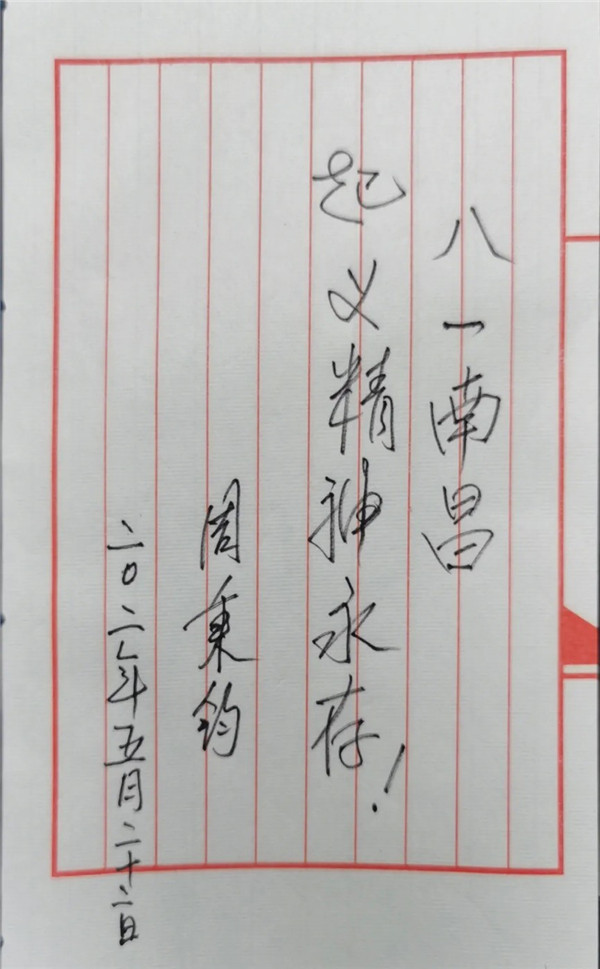 八一南昌
起义精神永存！
周秉钧
二〇二一年五月二十二日